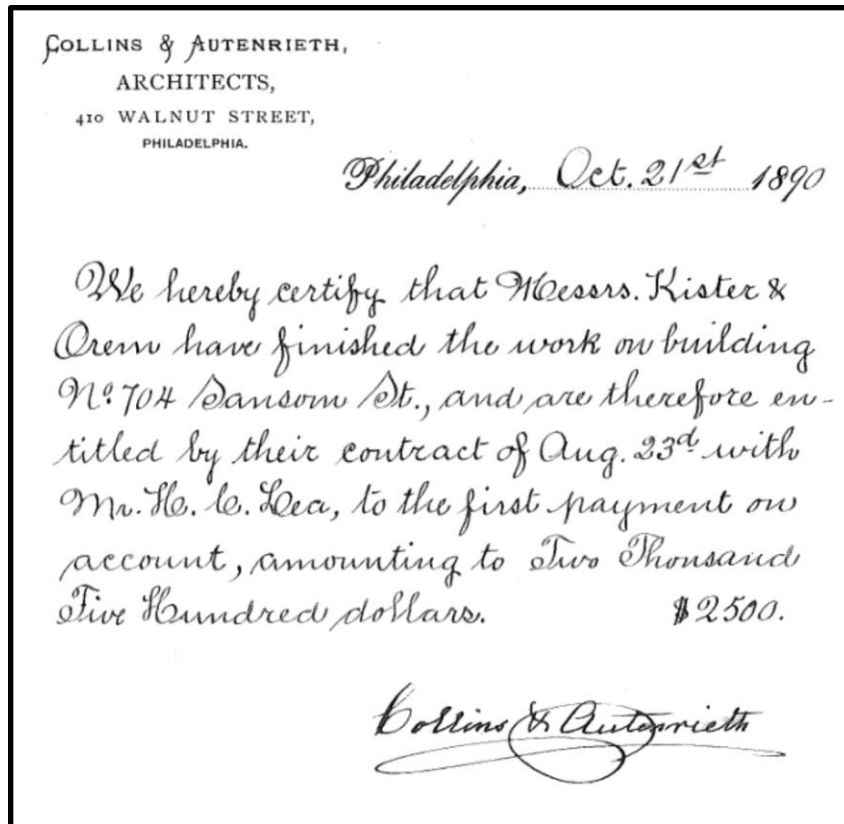 COLLINS & AUTENRIETH,
ARCHITECTS,
410 WALNUT STREET,
PHILADELPHIA.
Philadelphia, Oct. 21st 1890
We hereby certify that Messrs. Kister &
Orem have finished the work on building
No. 704 Sansom St., and are therefore en-
titled by their contract of Aug. 23d with
Mr. H. C. Lea, to the first payment on
account, amounting to Two Thousand
Five Hundred dollars. $2500.
Collins & Autenrieth